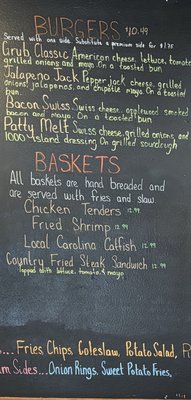 BURGERS $10.49
Served with one side. Substitute a premium side for $1.75
Grub Classic American cheese, lettuce, tomato,
grilled onions and mayo. On a toasted bun
Jalapeno Jack Pepper jack cheese, grilled
onions, jalapenos, and chipotle mayo. On a toasted
bun.
Bacon Swiss Swiss cheese, applewood smoked
bacon and mayo. On a toasted bun
Patty Melt Swiss cheese, grilled onions, and
1000 Island dressing. On grilled sourdough
BASKETS
All baskets are hand breaded and
are served with fries and slaw.
Chicken Tenders 12.99
Fried Shrimp 12.99
Local Carolina Catfish 12.99
Country Fried Steak Sandwich 12.99
Topped with lettuce, tomato, & mayo
Fries, Chips, Coleslaw, Potato Salad,
Sides... Onion Rings, Sweet Potato Fries,